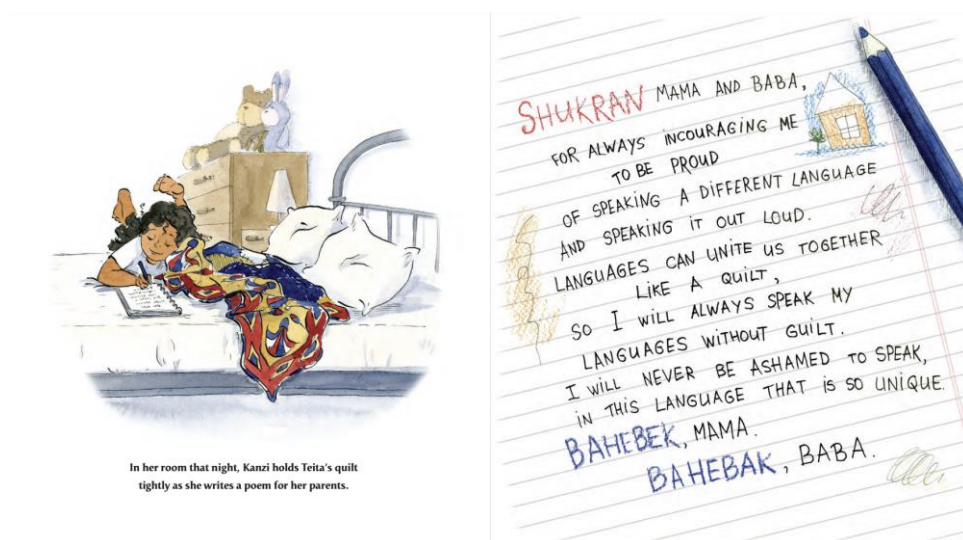 In her room that night, Kanzi holds Teita's quilt
tightly as she writes a poem for her parents.
SHUKRAN MAMA AND BABA,
FOR ALWAYS INCOURAGING ME
TO BE PROUD
OF SPEAKING A DIFFERENT LANGUAGE
AND SPEAKING IT OUT LOUD.
LANGUAGES CAN UNITE US TOGETHER
LIKE A QUILT,
SO I WILL ALWAYS SPEAK MY
LANGUAGES WITHOUT GUILT.
I WILL NEVER BE ASHAMED TO SPEAK,
IN THIS LANGUAGE THAT IS SO UNIQUE.
BAHEBEK, MAMA.
BAHEBAK, BABA.